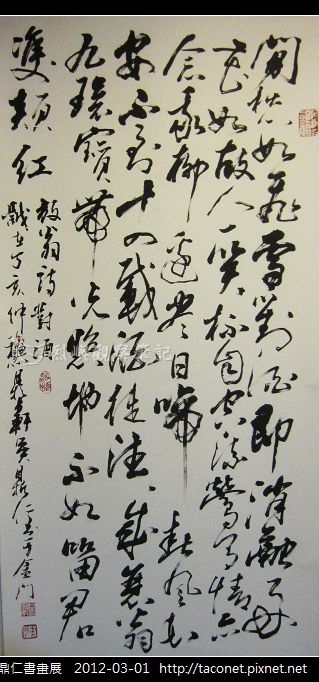 閒愁如飛雪對酒即消融好
花如故人一笑杯自空流鶯有情亦
念我柳邊盡日啼春風長
安不到十四載酒徒往往成衰翁
九環寶帶光照地不如留君
雙頰紅
放翁詩對酒
歲在丁亥仲穐鼎軒吳鼎仁書于金門
烈嶼觀察筆記
鼎仁書畫展 2012-03-01 http://taconet.pixnet.net